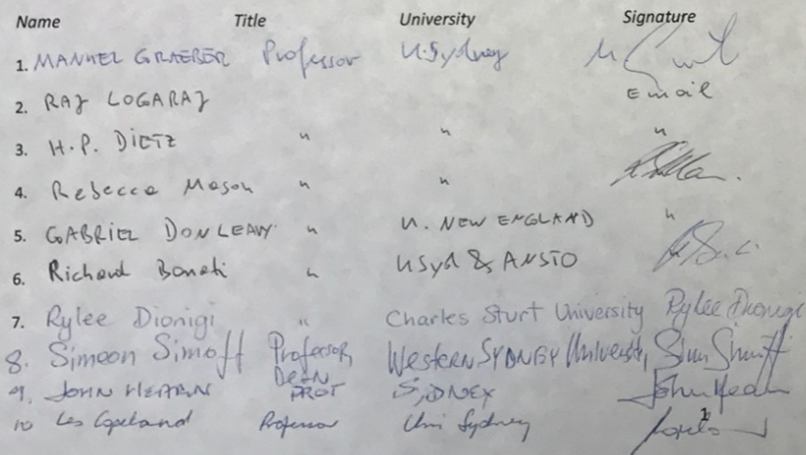 Name Title University Signature
1. MANUEL GRAEBER Professor U.Sydney
2. RAJ LOGARAJ Email
3. H.P. DIETZ " " "
4. Rebecca Mason " "
5. GABRIEL DONLEAVY " U. NEW ENGLAND "
6. Richard Banati " USyd & ANSTO
7. Rylee Dionigi " Charles Sturt University Rylee Dionigi
8. Simeon Simoff Professor, Western SYDNEY University,
DEAN
9. JOHN HEARN PROF SYDNEY John Hearn
10 Les Copeland Professor Uni Sydney